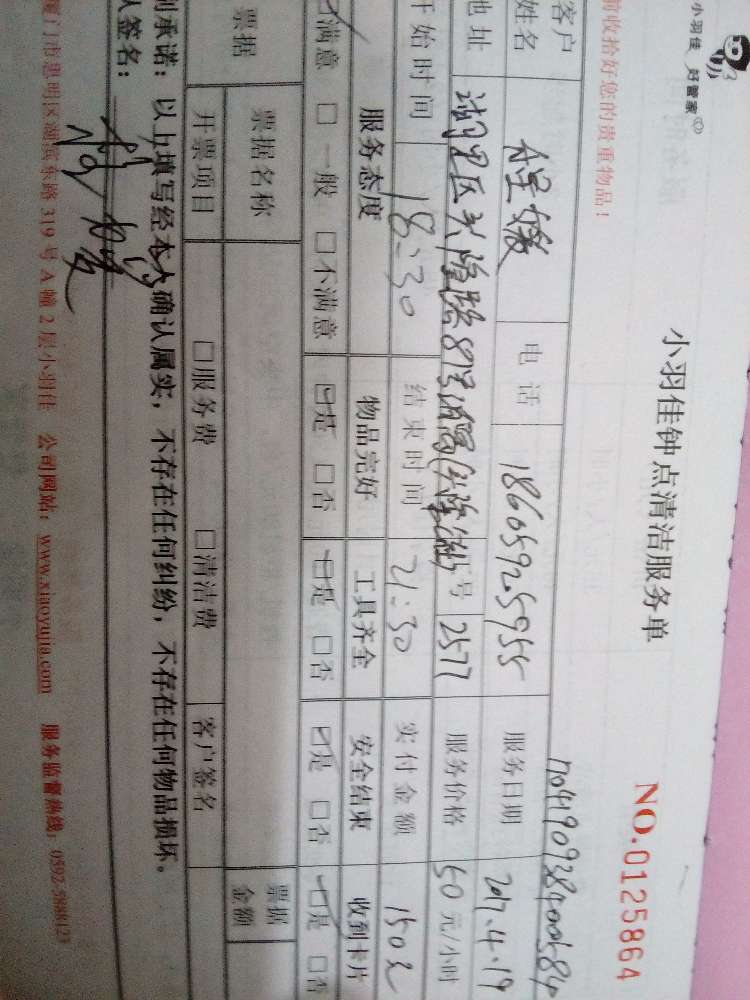 小羽佳 好管家
小羽佳钟点清洁服务单
NO.0125864
前收拾好您的贵重物品！
no419092840058
客户姓名 电话 18605925955 服务日期 2017.4.19
地址 湖里区兴隆路 号 2577 服务价格 50元/小时
开始时间 18:30 结束时间 21:30 实付金额 150元
服务态度 物品完好 工具齐全 安全结束 收到卡片
☑满意 □一般 □不满意 ☑是 □否 ☑是 □否 ☑是 □否 ☑是 □否
票据 票据名称 票据金额
开票项目 □服务费 □清洁费 客户签名
别承诺：以上填写经本人确认属实，不存在任何纠纷，不存在任何物品损坏。
人签名：
厦门市思明区湖滨东路319号A幢2层小羽佳 公司网站：www.xiaoyujia.com 服务监督热线：0592-5888123